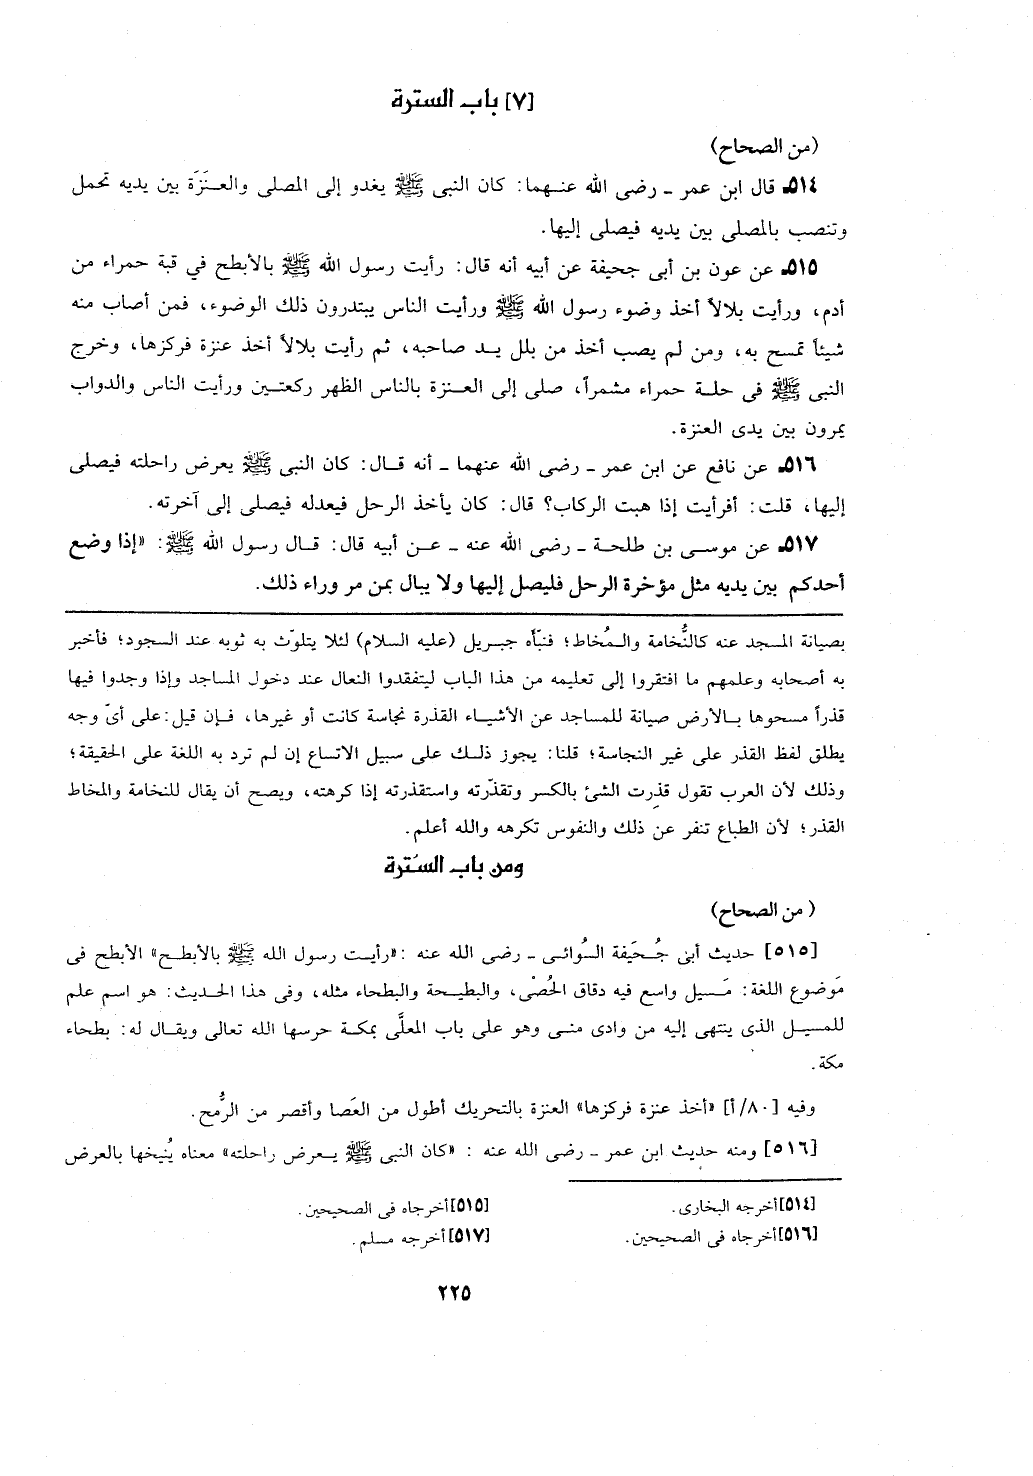 [٧] باب السترة
(من الصحاح)
٥١٤ـ قال ابن عمر ـ رضى الله عنهما: كان النبى ﷺ يغدو إلى المصلى والعنَزَة بين يديه تحمل
وتنصب بالمصلى بين يديه فيصلى إليها.
٥١٥ـ عن عون بن أبى جحيفة عن أبيه أنه قال: رأيت رسول الله ﷺ بالأبطح في قبة حمراء من
أدم، ورأيت بلالاً أخذ وضوء رسول الله ﷺ ورأيت الناس يبتدرون ذلك الوضوء، فمن أصاب منه
شيئاً تمسح به، ومن لم يصب أخذ من بلل يد صاحبه، ثم رأيت بلالاً أخذ عنزة فركزها، وخرج
النبى ﷺ فى حلة حمراء مشمراً، صلى إلى العنزة بالناس الظهر ركعتين ورأيت الناس والدواب
يمرون بين يدى العنزة.
٥١٦ـ عن نافع عن ابن عمر ـ رضى الله عنهما ـ أنه قال: كان النبى ﷺ يعرض راحلته فيصلى
إليها، قلت: أفرأيت إذا هبت الركاب؟ قال: كان يأخذ الرحل فيعدله فيصلى إلى آخرته.
٥١٧ـ عن موسى بن طلحة ـ رضى الله عنه ـ عن أبيه قال: قال رسول الله ﷺ: «إذا وضع
أحدكم بين يديه مثل مؤخرة الرحل فليصل إليها ولا يبال بمن مر وراء ذلك.
بصيانة المسجد عنه كالنُّخامة والمُخاط؛ فنبَّأه جبريل (عليه السلام) لئلا يتلوّث به ثوبه عند السجود؛ فأخبر
به أصحابه وعلمهم ما افتقروا إلى تعليمه من هذا الباب ليتفقدوا النعال عند دخول المساجد وإذا وجدوا فيها
قذراً مسحوها بالأرض صيانة للمساجد عن الأشياء القذرة نجاسة كانت أو غيرها، فإن قيل: على أىّ وجه
يطلق لفظ القذر على غير النجاسة؛ قلنا: يجوز ذلك على سبيل الاتساع إن لم ترد به اللغة على الحقيقة؛
وذلك لأن العرب تقول قذِرت الشئ بالكسر وتقذّرته واستقذرته إذا كرهته، ويصح أن يقال للنخامة والمخاط
القذر؛ لأن الطباع تنفر عن ذلك والنفوس تكرهه والله أعلم.
ومن باب السُترة
( من الصحاح)
[٥١٥] حديث أبى جُحَيفة السُوائى ـ رضى الله عنه :«رأيت رسول الله ﷺ بالأبطح» الأبطح فى
مَوضوع اللغة: مَسيل واسع فيه دقاق الحُصْى، والبطيحة والبطحاء مثله، وفى هذا الحديث: هو اسم علم
للمسيل الذى ينتهى إليه من وادى منى وهو على باب المعلَّى بمكة حرسها الله تعالى ويقال له: بطحاء
مكة.
وفيه [٨٠/أ] «أخذ عنزة فركزها» العنزة بالتحريك أطول من العَصا وأقصر من الرُّمح.
[٥١٦] ومنه حديث ابن عمر ـ رضى الله عنه : «كان النبى ﷺ يعرض راحلته» معناه يُنيخها بالعرض
[٥١٤]أخرجه البخارى.
[٥١٥]أخرجاه فى الصحيحين.
[٥١٦]أخرجاه فى الصحيحين.
[٥١٧]أخرجه مسلم.
٢٢٥